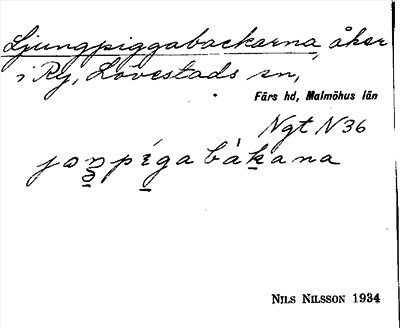 Ljungpiggabackarna, åker
i Ry, Lövestads sn,
Färs hd, Malmöhus län
Ngt N 36
NILS NILSSON 1934